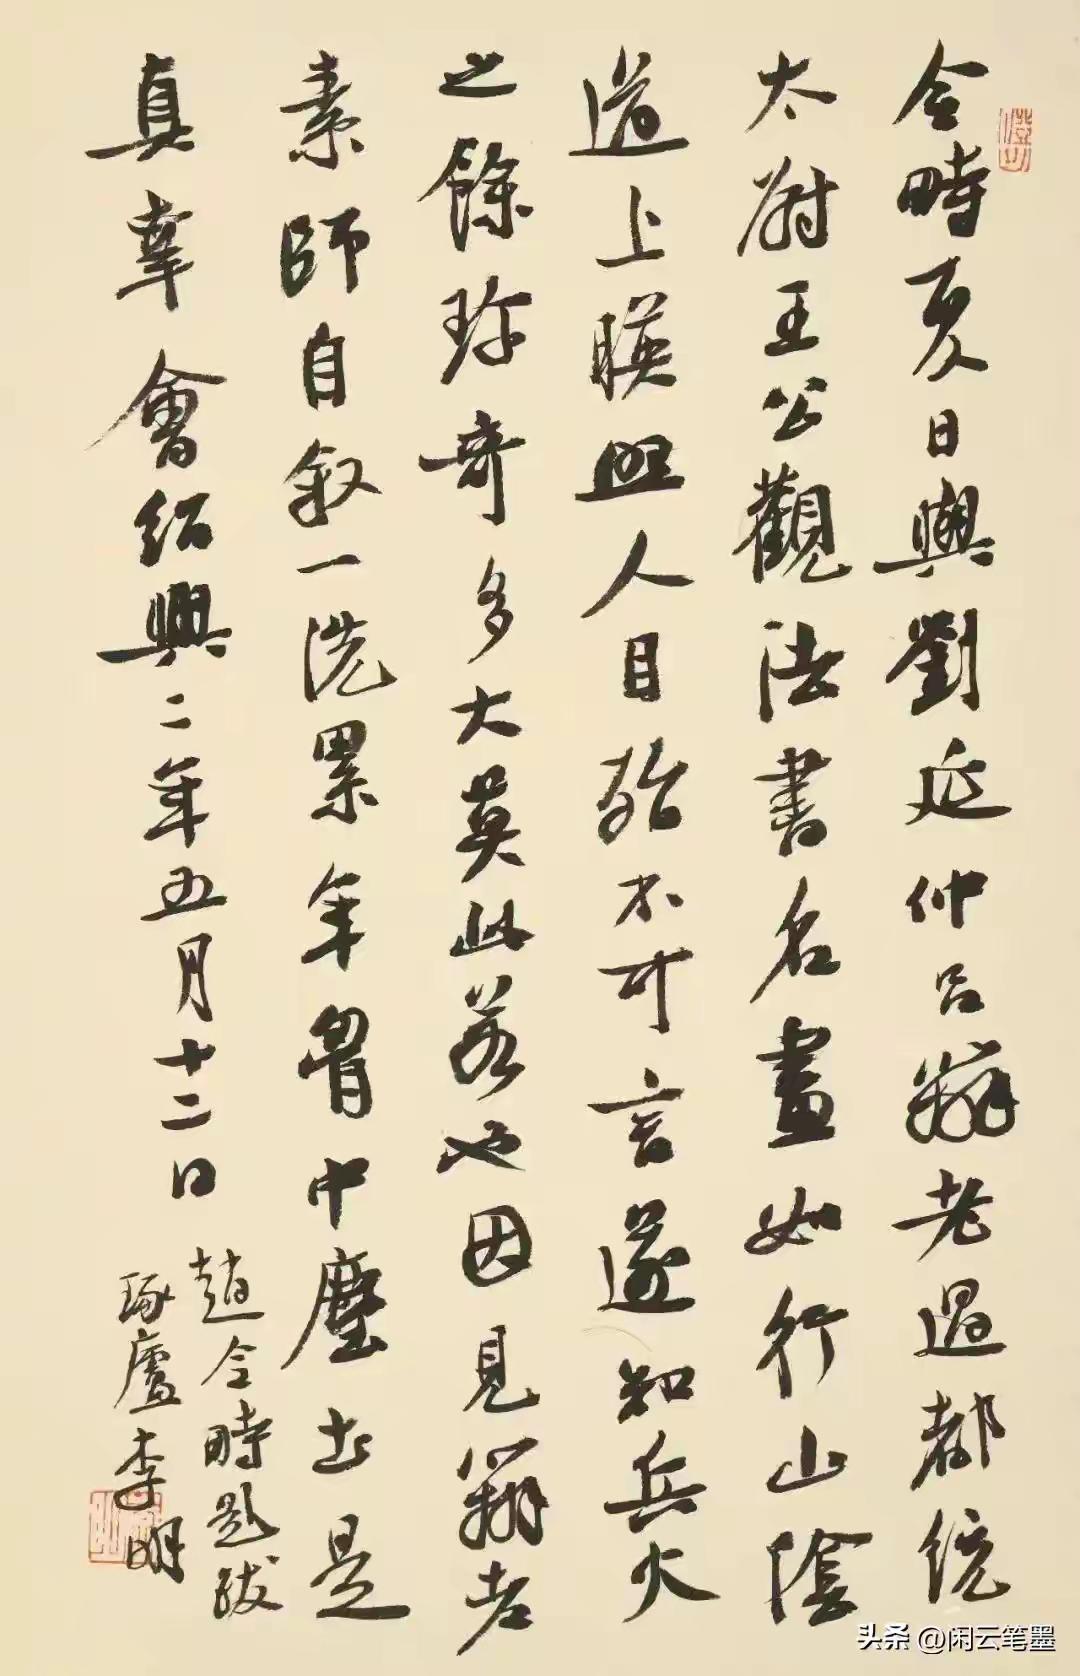 令時夏日與劉延仲呂辯老過都統
太尉王公觀法書名畫如行山陰
道上暎照人目殆不可言遂知兵火
之餘珎奇多大莫此若也因見辯老
素師自叙一洗累年胷中塵土是
真幸會紹興二年五月十二日
趙令時題跋
琢廬李明
头条 @闲云笔墨